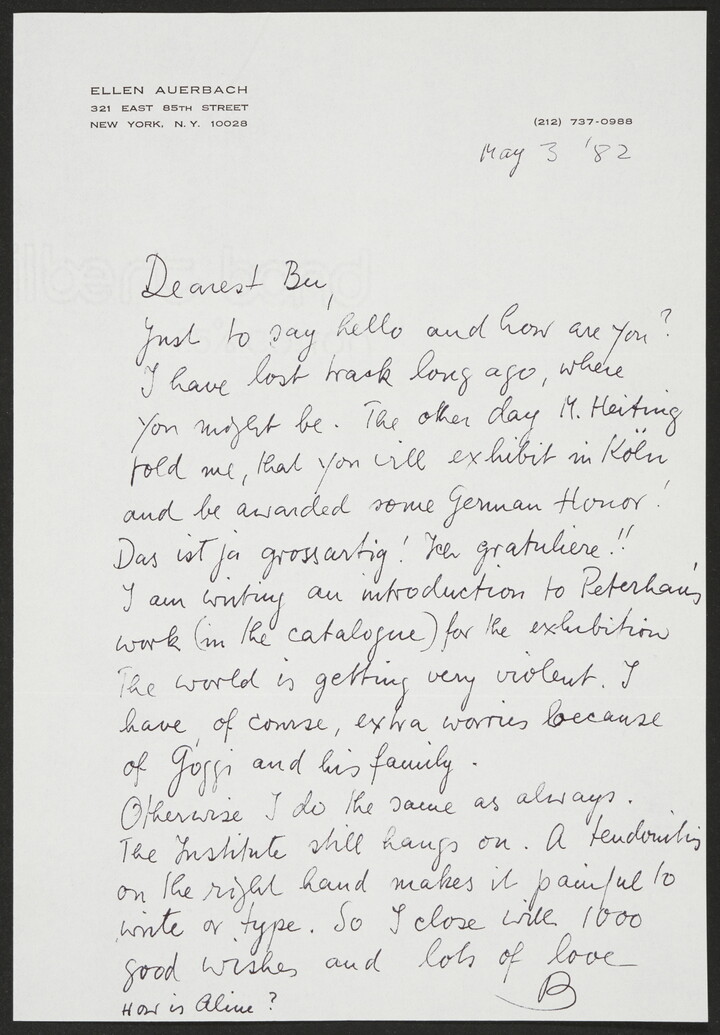 ELLEN AUERBACH
321 EAST 85TH STREET
NEW YORK, N.Y. 10028
(212) 737-0988
May 3 '82
Dearest Bu,
Just to say hello and how are you?
I have lost track long ago, where
you might be. The other day M. Heiting
told me, that you will exhibit in Köln
and be awarded some German Honor!
Das ist ja grossartig! Ich gratuliere!!
I am writing an introduction to Peterhans
work (in the catalogue) for the exhibition
The world is getting very violent. I
have, of course, extra worries because
of Goggi and his family.
Otherwise I do the same as always.
The Institute still hangs on. A tendonitis
on the right hand makes it painful to
write or type. So I close with 1000
good wishes and lots of love
B
How is Aline?